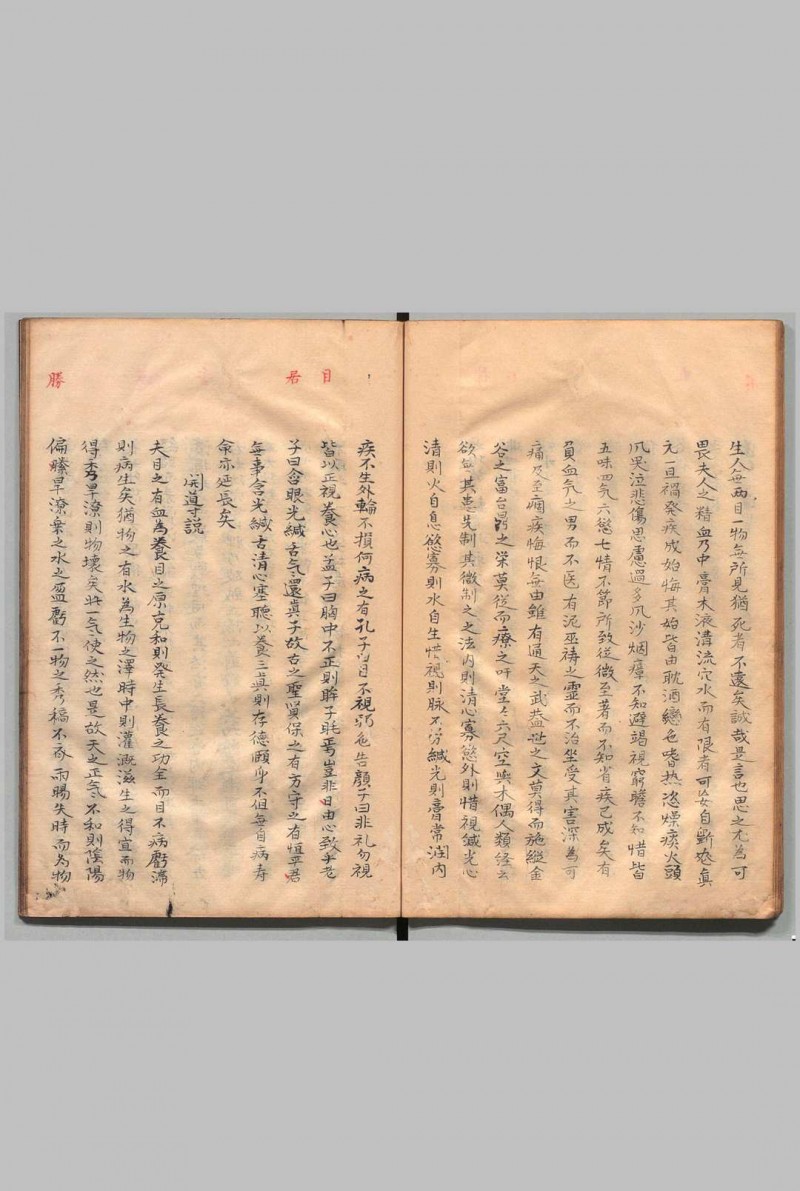 生人無两目一物無所見猶死者不還矣誠哉是言也思之尤為可
畏夫人之精血乃中膏木液溝流穴水而有限者可安自斵𠫵真
元一旦禍發疾成始悔其始皆由耽酒戀色嗜热恣燥痰火頭
風哭泣悲傷思慮過多风沙烟瘴不知避竭視窮瞻不知惜皆
五味四氣六慾七情不節所致従微至著而不知省疾已成矣有
負血气之男而不医有泥巫祷之霊而不治坐受其害深為可
痛及至痼疾悔恨無由雖有通天之武葢世之文莫得而施縱金
谷之富台鼎之栄莫従而療之吁堂々六尺空與木偶人類経云
欲無其患先制其微制之之法内則清心寡慾外則惜視緘光心
清則火自息慾寡則水自生惜視則脉不劳緘光則膏常润内
目
君
勝
疾不生外輪不損何病之有孔子曰目不視邪色告顔子曰非礼勿視
皆以正視養心也孟子曰胸中不正則眸子眊焉豈非目由心致乎老
子曰含眼光緘舌气還真子故古之聖賢保之有方守之有恒平君
每事含光緘舌清心塞聴以養三真則存徳頤身不但無目病寿
命亦延長矣
開導寸説
夫目之有血為養目之原充和則発生長養之功全而目不病虧滞
則病生矣猶物之有水為生物之澤時中則灌溉滋生之得宜而物
得秀旱潦則物壊矣皆一气使之然也是故天之正气不和則陰陽
偏勝旱潦乗之水之盈虧不一物之秀稿不齊雨暘失時而為物